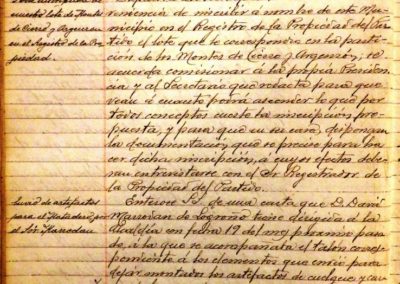 nuestro lote de Montes
de Cicero y Argueron
en el Registro de la Pro
piedad.
veniencia de inscribir á nombre de este Mu-
nicipio en el Registro de la Propiedad del Par-
tido el lote que le corresponde en la parti-
ción de los Montes de Cicero y Argueron, se
acuerda comisionar á la propia Presiden-
cia y al Secretario que redacta para que
vean á cuanto podrá ascender lo que por
todos conceptos cueste la inscripción pro-
puesta, y para que en su caso, dispongan
la documentación que se precise para ha-
cer dicha inscripción, á cuyos efectos debe-
ran entrevistarse con el Sr Registrador de
la Propiedad del Partido.
de artefactos
para el Matadero por
el Sor
Enterose S.S. de una carta que D. David
de Logroño tiene dirigida á la
Alcaldía con fecha 19 del mes pasa-
do, á la que se acompañaba el talon corres-
pondiente á los elementos que envió para
dejar montados los artefactos de cuelgue y